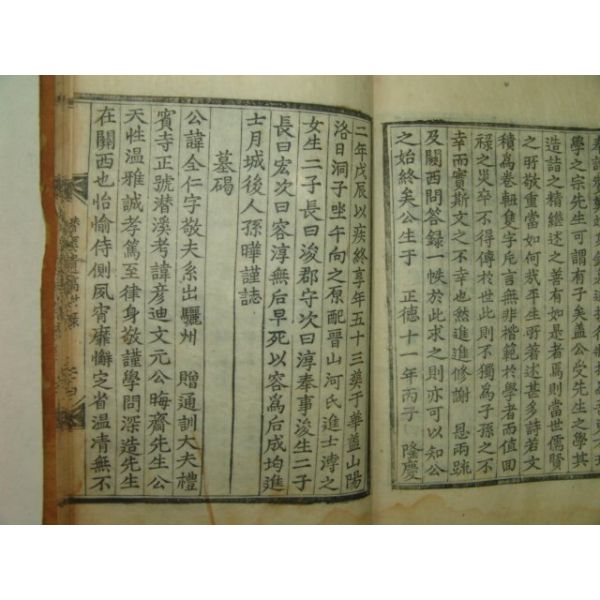 學之宗先生可謂有子矣盖公受先生之學其
造詣之精繼述之善有如是者焉則當世儒賢
之所敬重當如何哉平生所著述甚多詩若文
積爲卷軸隻字片言無非楷範於學者而値回
祿之灾卒不得傳於世此則不獨爲子孫之不
幸而實斯文之不幸也然進進修謝 恩兩疏
及關西問答録一帙於此求之則亦可以知公
之始終矣公生于 正德十一年丙子 隆慶
二年戊辰以疾終享年五十三葬于華盖山陽
洛日洞子坐午向之原配晉山河氏進士溥之
女生二子長曰浚郡守次曰淳奉事浚生二子
長曰宏次曰容淳無后早死以容爲后成均進
士月城後人孫曄謹誌
墓碣
公諱全仁字敬夫系出驪州 贈通訓大夫禮
賓寺正號潛溪考諱彦迪文元公晦齋先生公
天性溫雅誠孝篤至律身敬謹學問深造先生
在關西也怡愉侍側夙宵靡懈定省溫凊無不